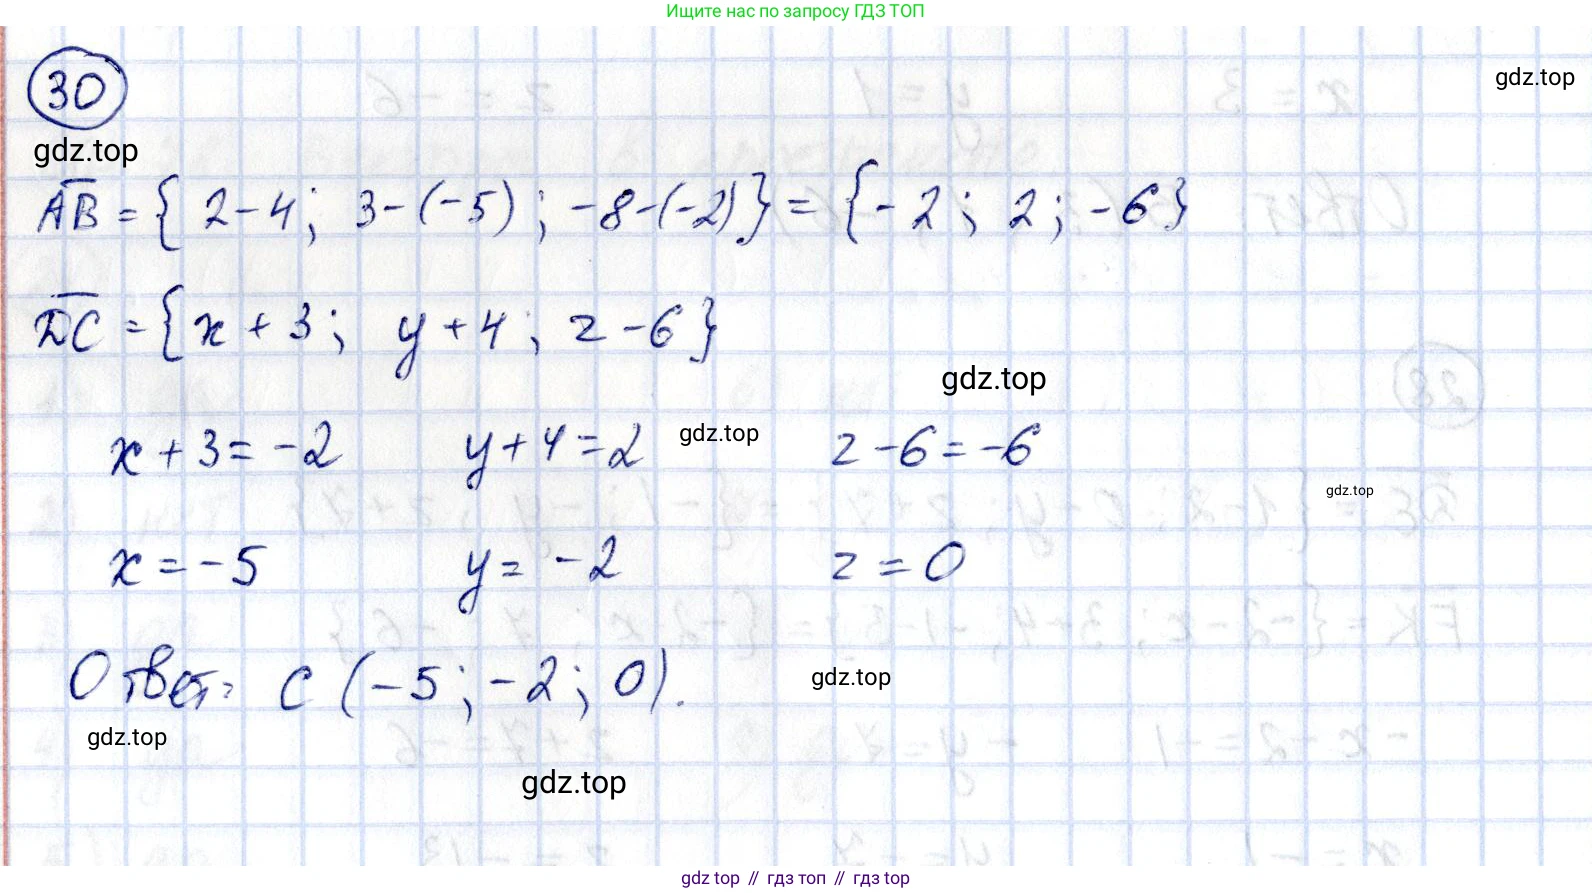 Ищите нас по запросу ГДЗ ТОП
30
gdz.top
gdz.top
AB = { 2-4; 3-(-5); -8-(-2)} = {-2; 2; -6}
DC = {x+3; y+4; z-6}
gdz.top
x+3=-2 y+4=2 gdz.top z-6=-6
gdz.top
x=-5 y=-2 z=0
Ответ: C (-5; -2; 0).
gdz.top
gdz.top
gdz.top
gdz.top // гдз топ // gdz.top